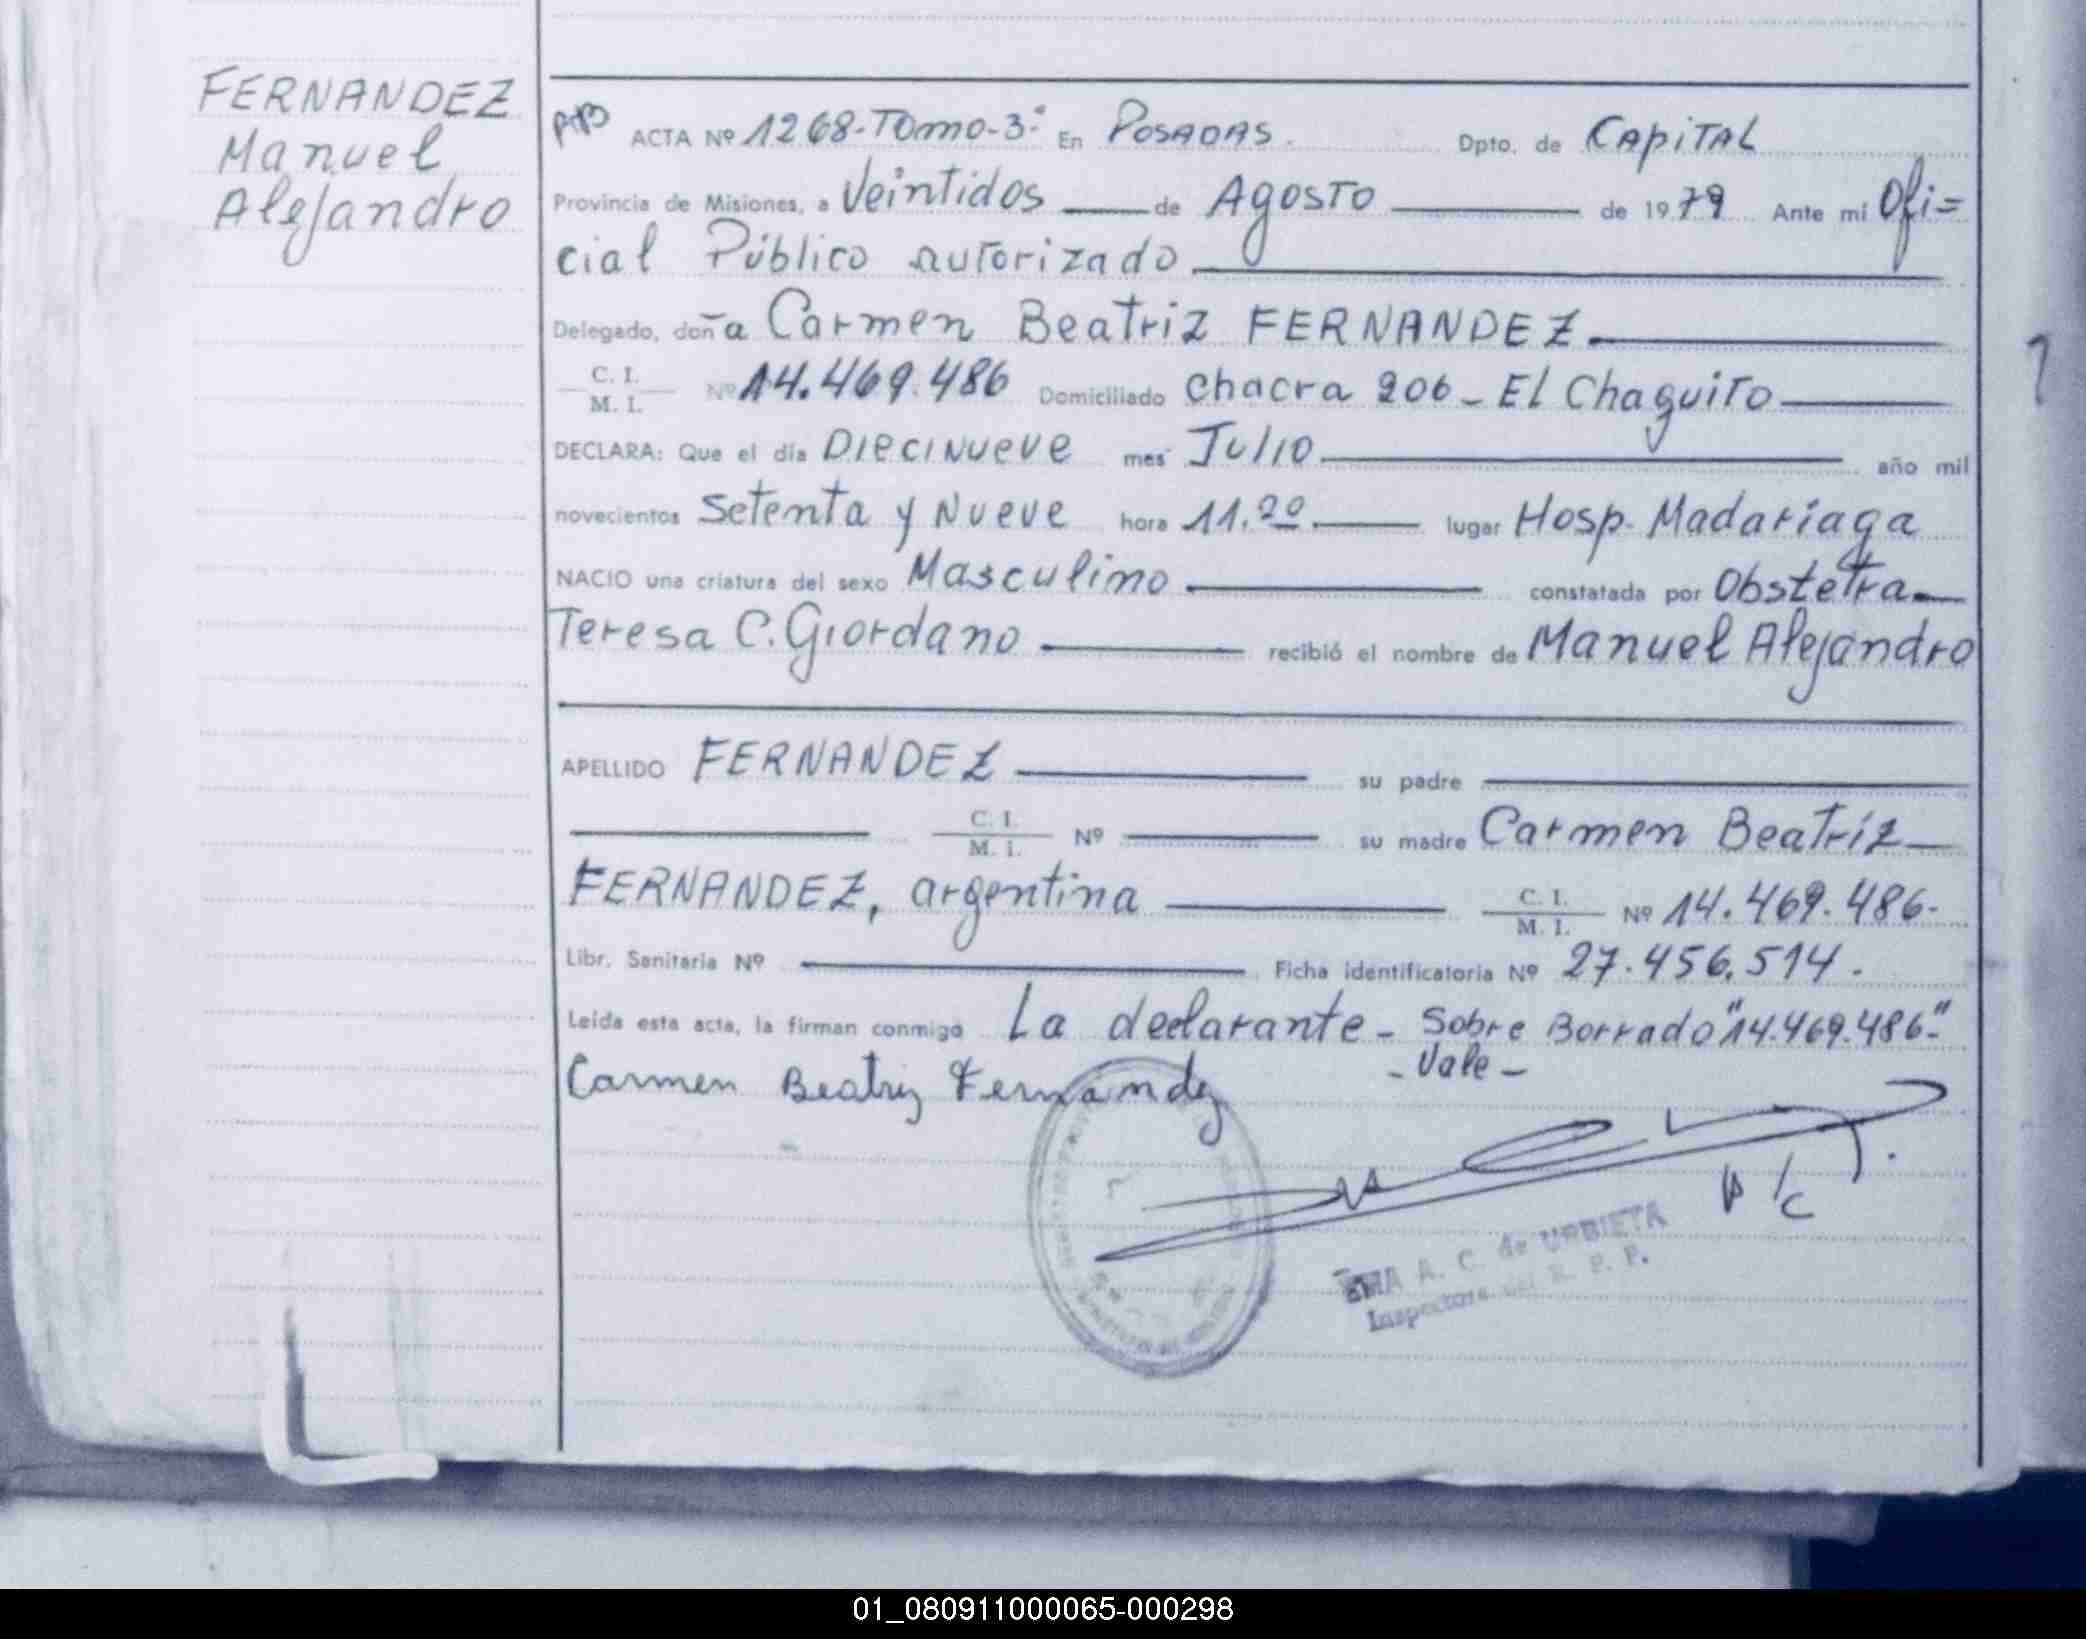 FERNANDEZ
Manuel
Alejandro
ACTA Nº 1268-Tomo-3º En POSADAS. Dpto. de CAPITAL
Provincia de Misiones, a Veintidos de AGOSTO de 1979 Ante mí Ofi=
cial Público autorizado
Delegado, doña Carmen Beatriz FERNANDEZ
C. I.
M. I. Nº 14.469.486 Domiciliado Chacra 206 - El Chaquito
DECLARA: Que el día Diecinueve mes Julio año mil
novecientos Setenta y Nueve hora 11.20 lugar Hosp. Madariaga
NACIO una criatura del sexo Masculino constatada por Obstetra
Teresa C. Giordano recibió el nombre de Manuel Alejandro
APELLIDO FERNANDEZ su padre
C. I.
M. I. Nº su madre Carmen Beatriz
FERNANDEZ, argentina C. I.
M. I. Nº 14.469.486-
Libr. Sanitaria Nº Ficha identificatoria Nº 27.456.514.
Leída esta acta, la firman conmigo La declarante - Sobre Borrado "14.469.486."
- Vale -
Carmen Beatriz Fernandez
A. C. de URBIETA
Inspectora del R. P. P.
01_080911000065-000298